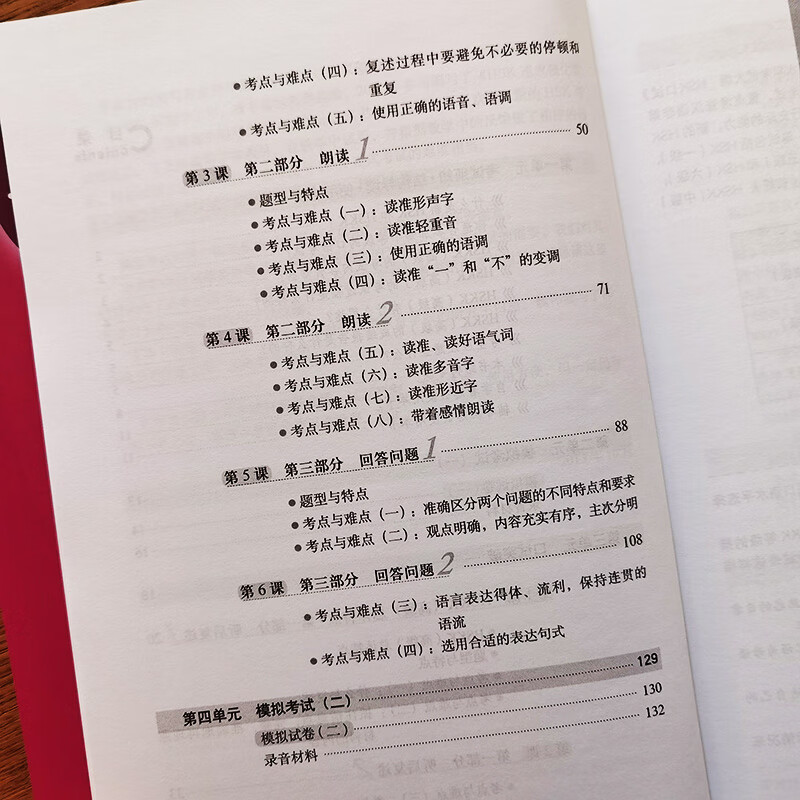 ●考点与难点（四）：复述过程中要避免不必要的停顿和
重复
●考点与难点（五）：使用正确的语音、语调
第3课 第二部分 朗读1 50
●题型与特点
●考点与难点（一）：读准形声字
●考点与难点（二）：读准轻重音
●考点与难点（三）：使用正确的语调
●考点与难点（四）：读准“一”和“不”的变调
第4课 第二部分 朗读2 71
●考点与难点（五）：读准、读好语气词
●考点与难点（六）：读准多音字
●考点与难点（七）：读准形近字
●考点与难点（八）：带着感情朗读
第5课 第三部分 回答问题1 88
●题型与特点
●考点与难点（一）：准确区分两个问题的不同特点和要求
●考点与难点（二）：观点明确，内容充实有序，主次分明
第6课 第三部分 回答问题2 108
●考点与难点（三）：语言表达得体、流利，保持连贯的
语流
●考点与难点（四）：选用合适的表达句式
第四单元 模拟考试（二） 129
模拟试卷（二） 130
录音材料 132